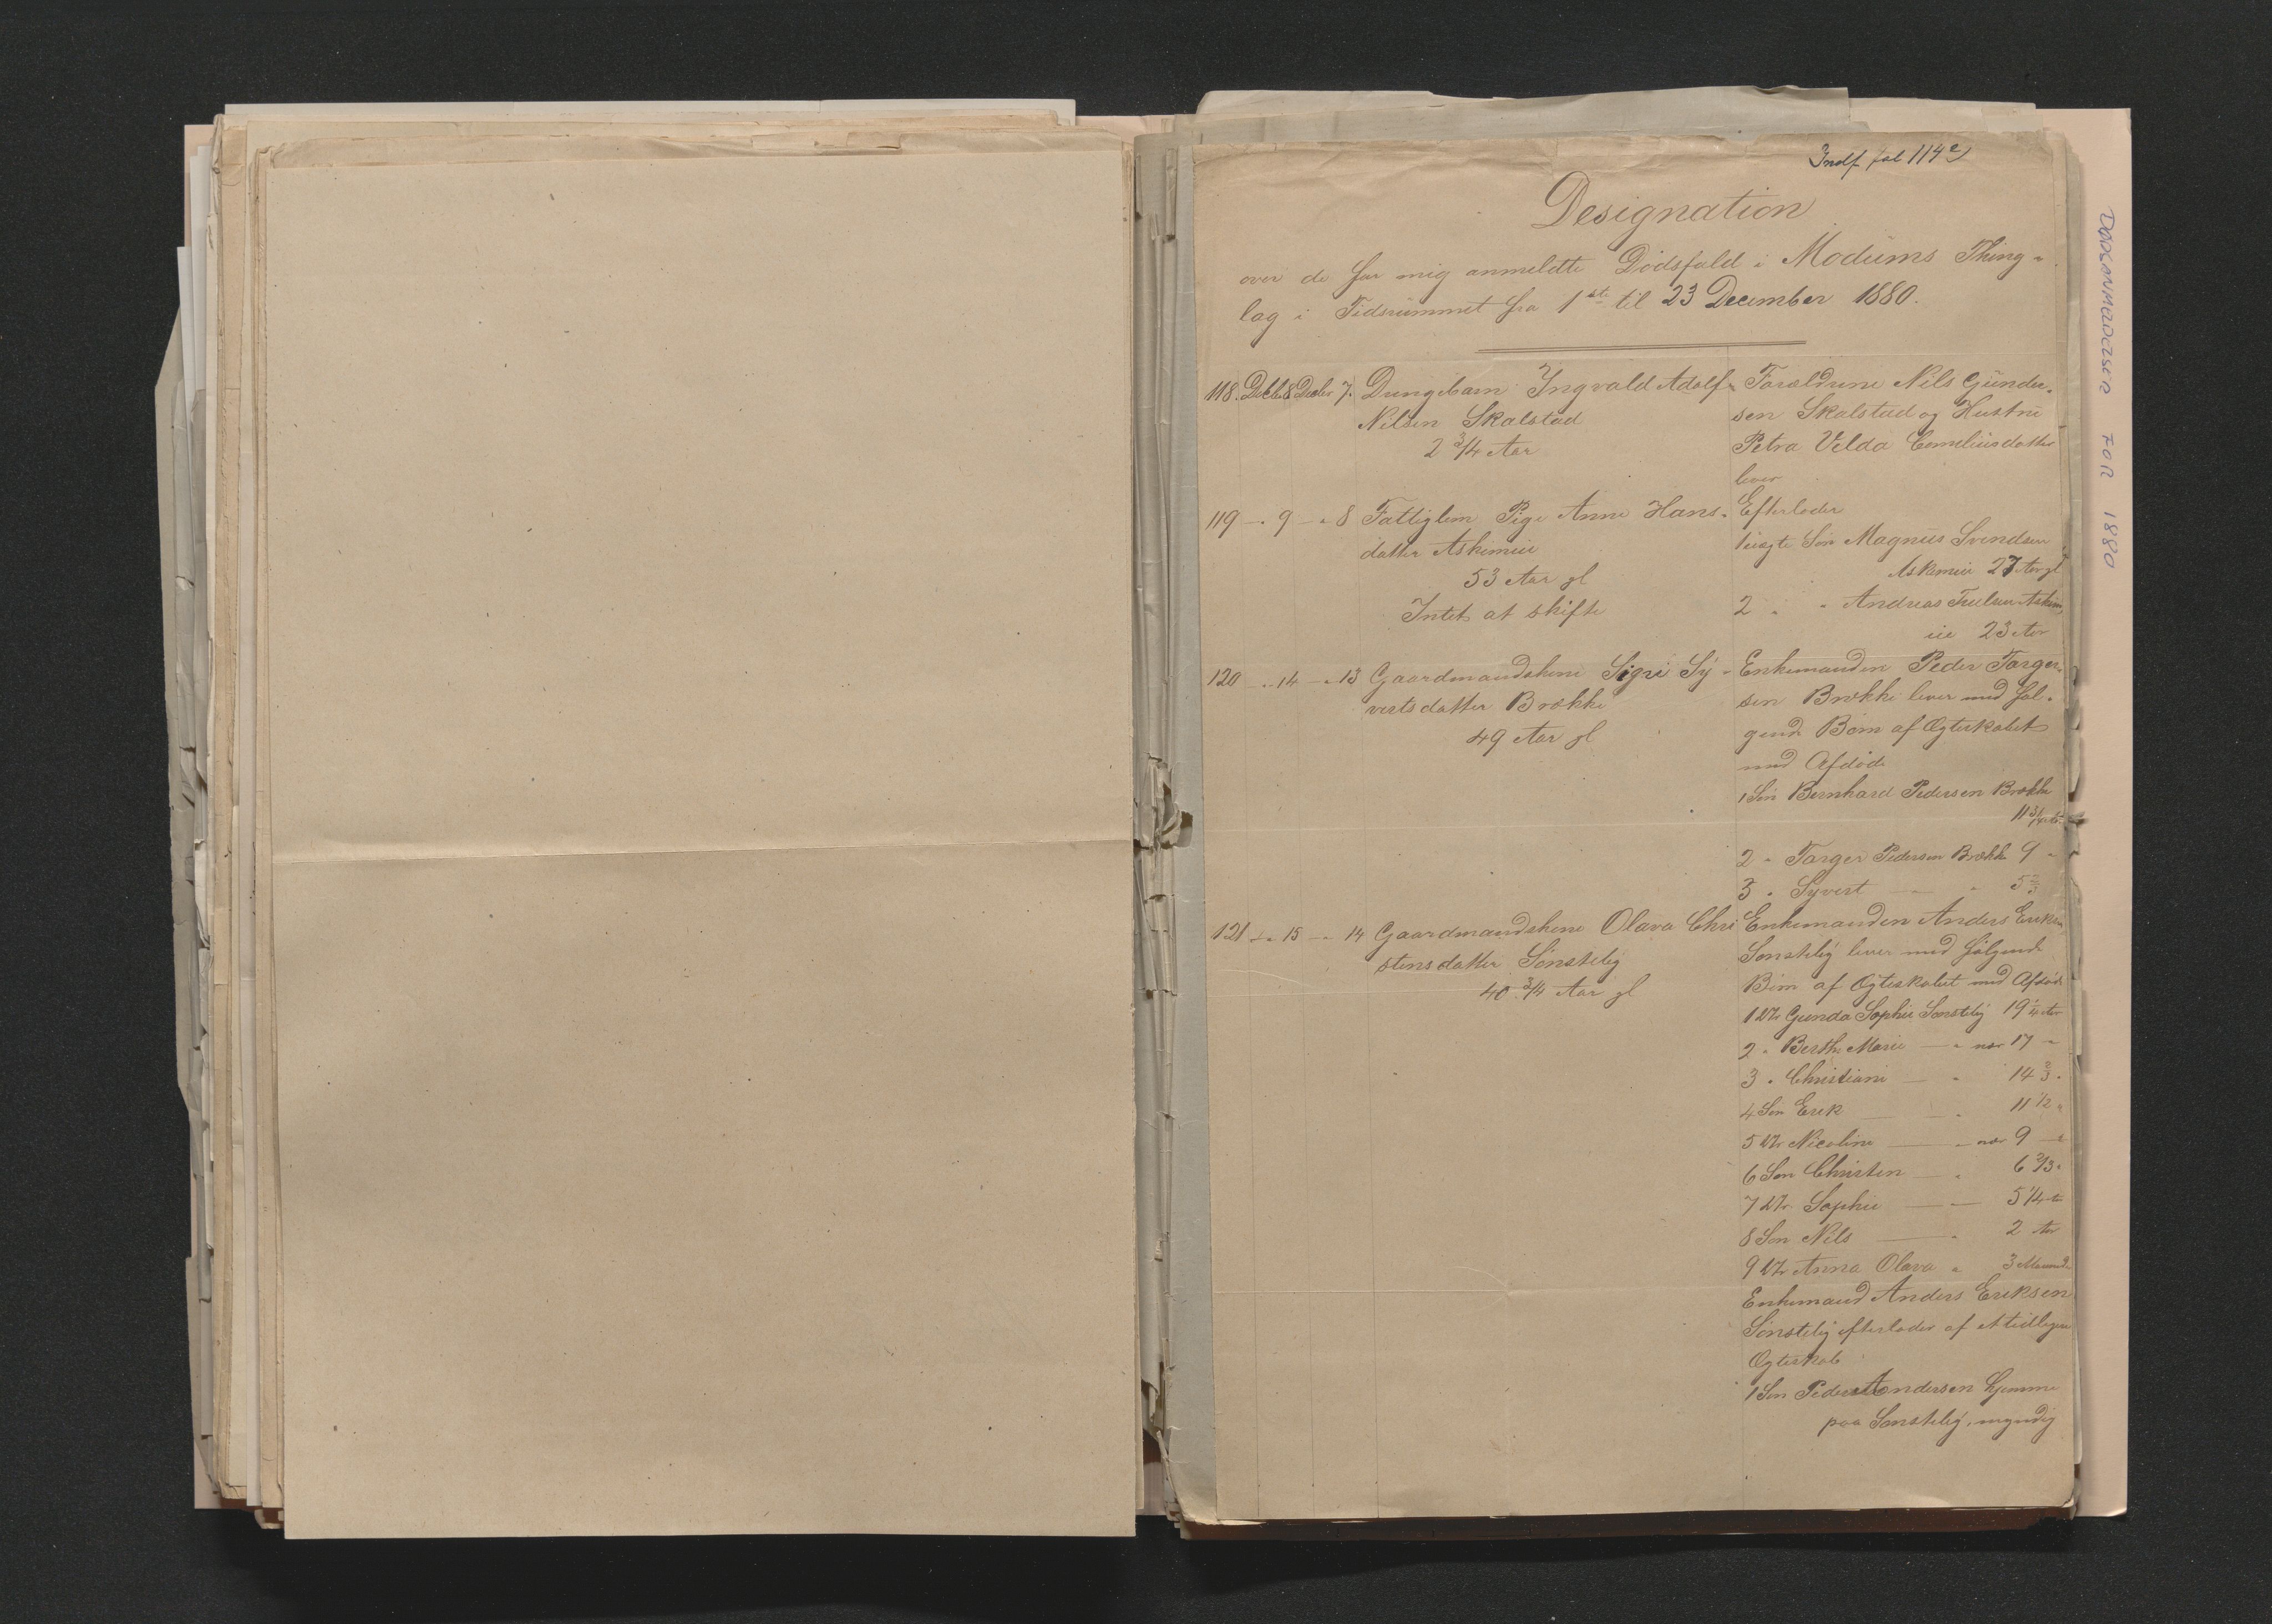 Indf fol 114
Designation
over de for mig anmeldte Dødsfald i Modums Thing-
lag i Tidsrummet fra 1ste til 23 December 1880.
118. Decbr 8 Decbr 7. Pungebarn Ingvald Adolf
Nilsen Skalstad
2 3/4 Aar
Forældrene Nils Gunder-
sen Skalstad og Hustru
Petra Velda Corneliusdatter
lever
119 - 9 - 8 Fattiglem Pige Anne Hans-
datter Askimeie
53 Aar gl
Intet at skifte
Efterlader
1 uægte Søn Magnus Svendsen
Askimeie 27 Aar gl
2 " " Andreas Truelsen Askim
eie 23 Aar
120 - 14 - 13 Gaardmandskone Sigri Sy-
vertsdatter Brække
49 Aar gl
Enkemanden Peder Torger-
sen Brække lever med føl-
gende Børn af Ægteskabet
med Afdøde
1 Søn Bernhard Pedersen Brække
11 3/4 Aar
2 " Torger Pedersen Brække 9 "
3 " Syvert — " 5 2/3
121 - 15 - 14 Gaardmandskone Olava Chri
stensdatter Sønsteby
40 3/4 Aar gl
Enkemanden Anders Eriksen
Sønsteby lever med følgende
Børn af Ægteskabet med Afdøde
1 Dtr Gunda Sophie Sønsteby 19 1/4 Aar
2 " Berthe Marie — " nær 17 "
3 " Christiane — " 14 2/3 "
4 Søn Erik — " 11 1/2 "
5 Dtr Nicoline — " nær 9 — "
6 Søn Christen — " 6 2/3 "
7 Dtr. Sophie — — 5 1/4 "
8 Søn Nils — " 2 Aar
9 Dtr Anna Olava " 3 Maaneder
Enkemand Anders Eriksen
Sønsteby efterlader af et tidligere
Ægteskab
1 Søn Peder Andersen hjemme
paa Sønsteby, myndig
DØDSANMELDELSER FOR 1880